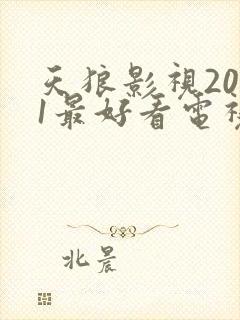 天狼影視20
1最好看電視
北晨